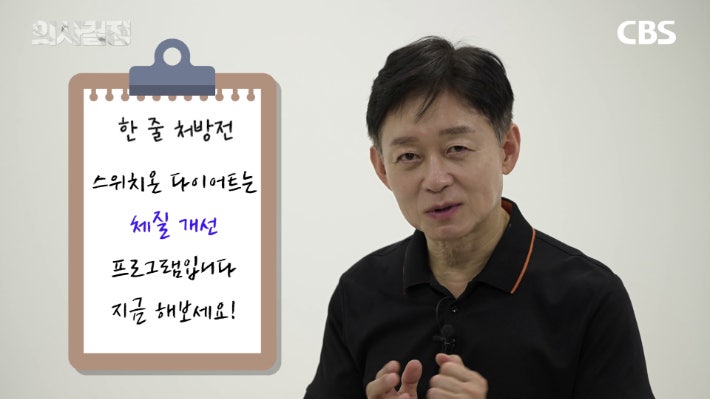 의사결전
CBS
한 줄 처방전
스위치온 다이어트는
체질 개선
프로그램입니다
지금 해보세요!